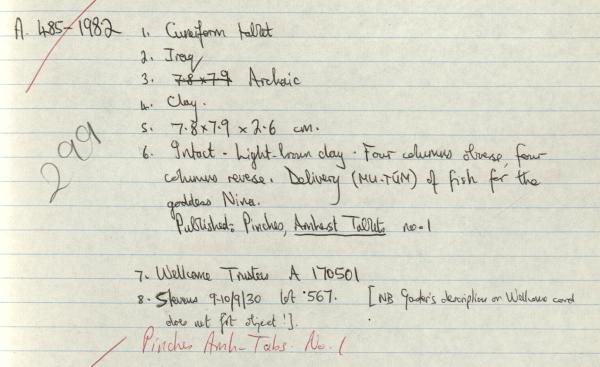 A. 485-1982 1. Cuneiform tablet
2. Iraq
3. 7.8 x 7.9 Archaic
4. Clay.
299
5. 7.8 x 7.9 x 2.6 cm.
6. Intact. Light-brown clay. Four columns obverse, four
columns reverse. Delivery (MU.TÚM) of fish for the
goddess Nina.
Published: Pinches, Amherst Tablets no. 1
7. Wellcome Trustees A 170501
8. Stevens 9-10/9/30 lot 567. [NB Gadd's description on Wellcome card
does not fit object!].
Pinches Amh. Tabs. No. 1